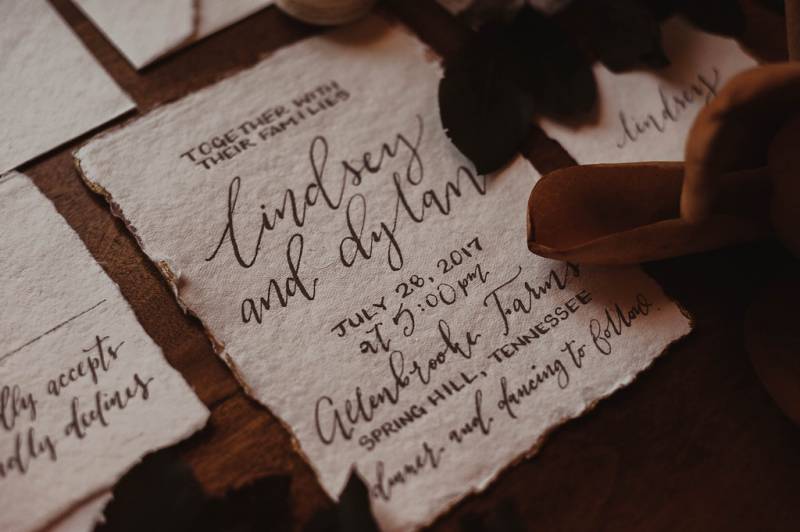 TOGETHER WITH
THEIR FAMILIES
lindsey
and dylan
JULY 28, 2017
at 5:00pm
Allenbrooke Farms
SPRING HILL, TENNESSEE
dinner and dancing to follow.
lindsey
accepts
declines